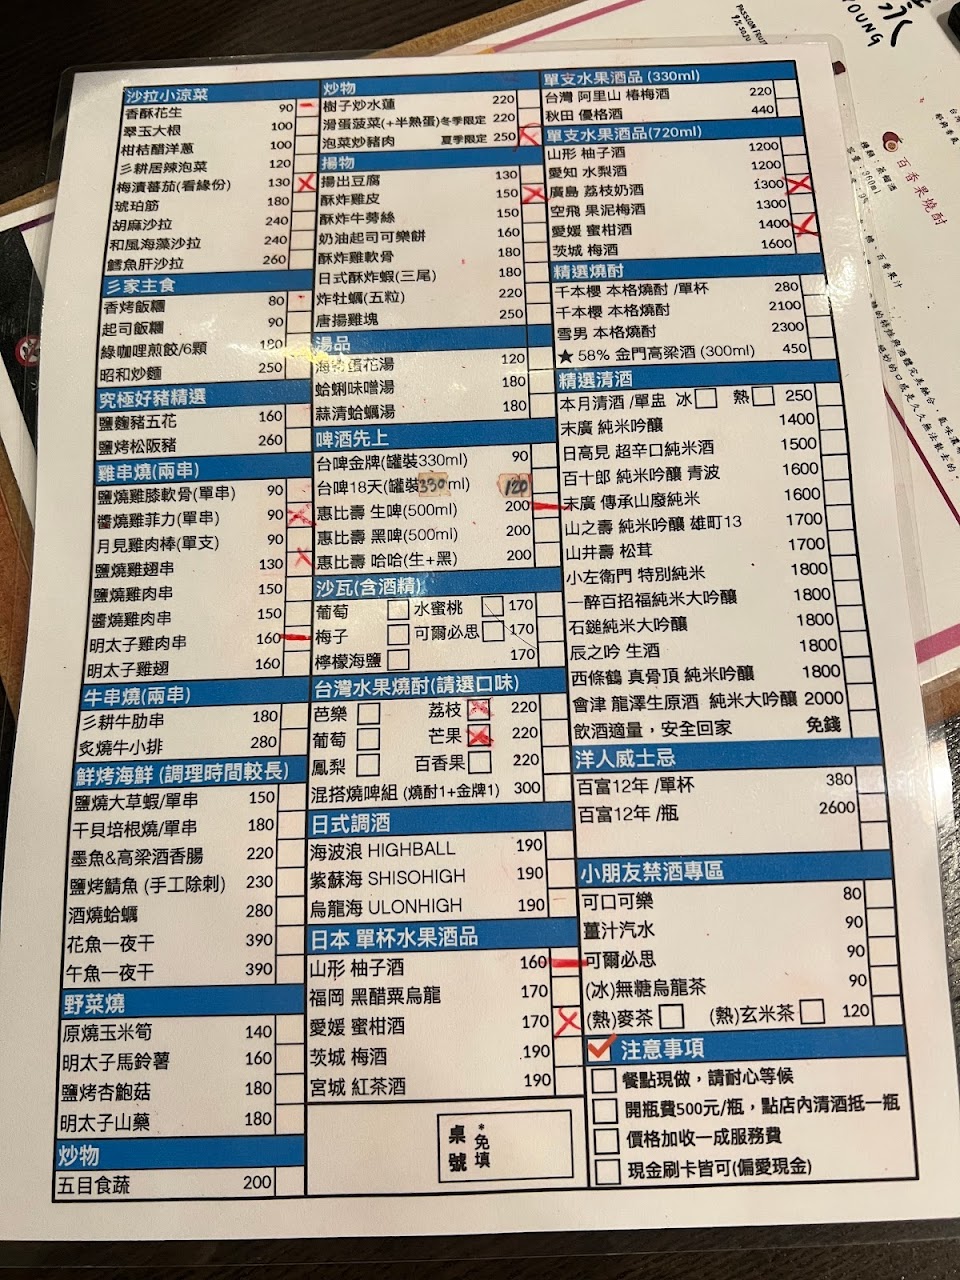 沙拉小涼菜
香酥花生 90
翠玉大根 100
柑桔醋洋蔥 100
彡耕居辣泡菜 120
梅漬蕃茄(看緣份) 130
琥珀筋 180
胡麻沙拉 240
和風海藻沙拉 240
鱈魚肝沙拉 260
彡家主食
香烤飯糰 80
起司飯糰 90
綠咖哩煎餃/6顆 180
昭和炒麵 250
究極好豬精選
鹽麴豬五花 160
鹽烤松阪豬 260
雞串燒(兩串)
鹽燒雞膝軟骨(單串) 90
醬燒雞菲力(單串) 90
月見雞肉棒(單支) 90
鹽燒雞翅串 130
鹽燒雞肉串 150
醬燒雞肉串 150
明太子雞肉串 160
明太子雞翅 160
牛串燒(兩串)
彡耕牛肋串 180
炙燒牛小排 280
鮮烤海鮮 (調理時間較長)
鹽燒大草蝦/單串 150
干貝培根燒/單串 180
墨魚&高梁酒香腸 220
鹽烤鯖魚 (手工除刺) 230
酒燒蛤蠣 280
花魚一夜干 390
午魚一夜干 390
野菜燒
原燒玉米筍 140
明太子馬鈴薯 160
鹽烤杏鮑菇 180
明太子山藥 180
炒物
五目食蔬 200
炒物
樹子炒水蓮 220
滑蛋菠菜(+半熟蛋)冬季限定 220
泡菜炒豬肉 夏季限定 250
揚物
揚出豆腐 130
酥炸雞皮 150
酥炸牛蒡絲 150
奶油起司可樂餅 160
酥炸雞軟骨 180
日式酥炸蝦(三尾) 180
炸牡蠣(五粒) 220
唐揚雞塊 250
湯品
海物蛋花湯 120
蛤蜊味噌湯 180
蒜清蛤蠣湯 180
啤酒先上
台啤金牌(罐裝330ml) 90
台啤18天(罐裝330ml) 120
惠比壽 生啤(500ml) 200
惠比壽 黑啤(500ml) 200
惠比壽 哈哈(生+黑) 200
沙瓦(含酒精)
葡萄 水蜜桃 170
梅子 可爾必思 170
檸檬海鹽 170
台灣水果燒酎(請選口味)
芭樂 荔枝 220
葡萄 芒果 220
鳳梨 百香果 220
混搭燒啤組 (燒酎1+金牌1) 300
日式調酒
海波浪 HIGHBALL 190
紫蘇海 SHISOHIGH 190
烏龍海 ULONHIGH 190
日本 單杯水果酒品
山形 柚子酒 160
福岡 黑醋粟烏龍 170
愛媛 蜜柑酒 170
茨城 梅酒 190
宮城 紅茶酒 190
桌號
*免填
單支水果酒品 (330ml)
台灣 阿里山 椿梅酒 220
秋田 優格酒 440
單支水果酒品(720ml)
山形 柚子酒 1200
愛知 水梨酒 1200
廣島 荔枝奶酒 1300
空飛 果泥梅酒 1300
愛媛 蜜柑酒 1400
茨城 梅酒 1600
精選燒酎
千本櫻 本格燒酎 /單杯 280
千本櫻 本格燒酎 2100
雪男 本格燒酎 2300
★ 58% 金門高梁酒 (300ml) 450
精選清酒
本月清酒 /單盅 冰 熱 250
末廣 純米吟釀 1400
日高見 超辛口純米酒 1500
百十郎 純米吟釀 青波 1600
末廣 傳承山廢純米 1600
山之壽 純米吟釀 雄町13 1700
山井壽 松茸 1700
小左衛門 特別純米 1800
一醉百招福純米大吟釀 1800
石鎚純米大吟釀 1800
辰之吟 生酒 1800
西條鶴 真骨頂 純米吟釀 1800
會津 龍澤生原酒 純米大吟釀 2000
飲酒適量，安全回家 免錢
洋人威士忌
百富12年 /單杯 380
百富12年 /瓶 2600
小朋友禁酒專區
可口可樂 80
薑汁汽水 90
可爾必思 90
(冰)無糖烏龍茶 90
(熱)麥茶 (熱)玄米茶 120
注意事項
餐點現做，請耐心等候
開瓶費500元/瓶，點店內清酒抵一瓶
價格加收一成服務費
現金刷卡皆可(偏愛現金)
YOUNG
百香果燒酎